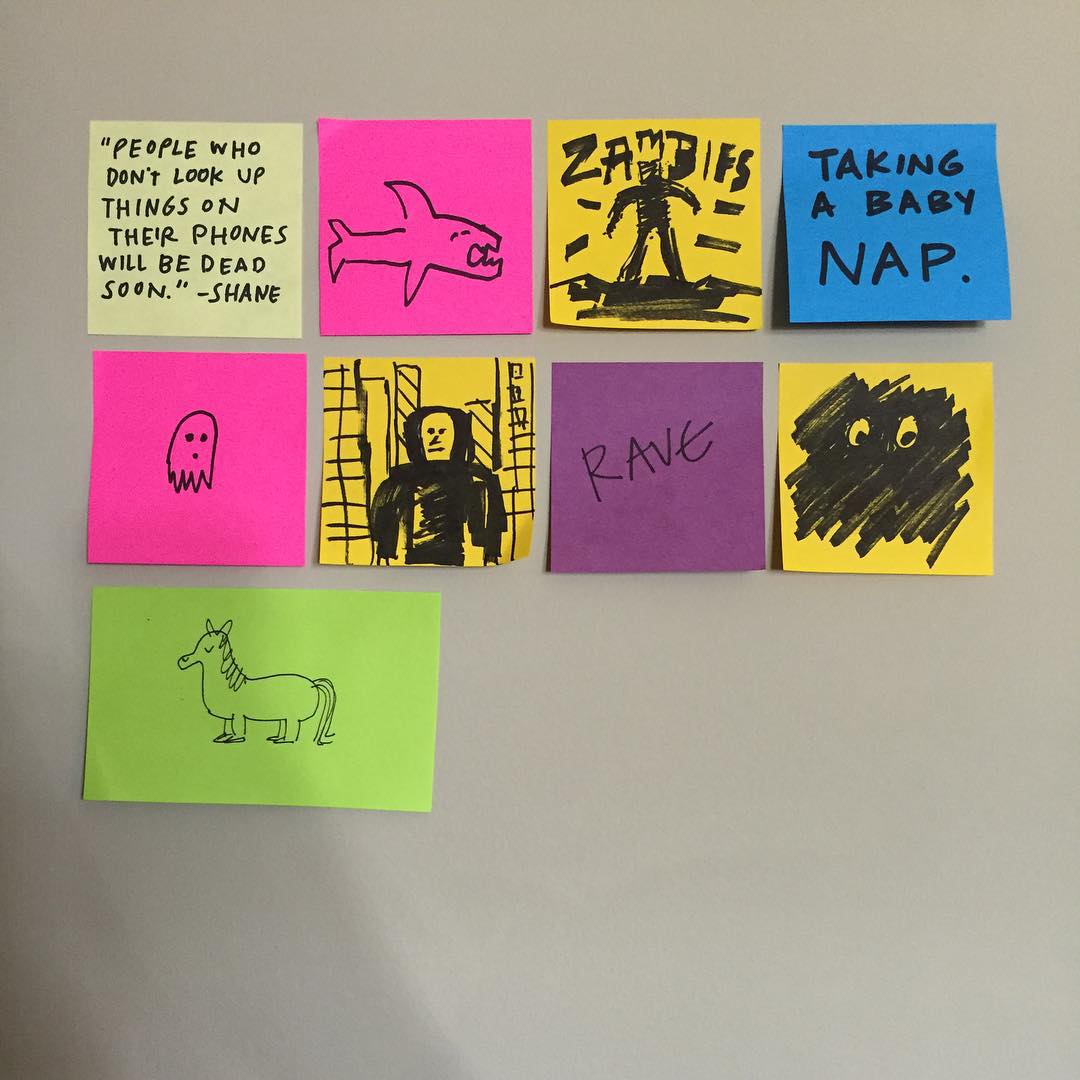 "PEOPLE WHO
DON'T LOOK UP
THINGS ON
THEIR PHONES
WILL BE DEAD
SOON." -SHANE
ZAMBIES
TAKING
A BABY
NAP.
RAVE